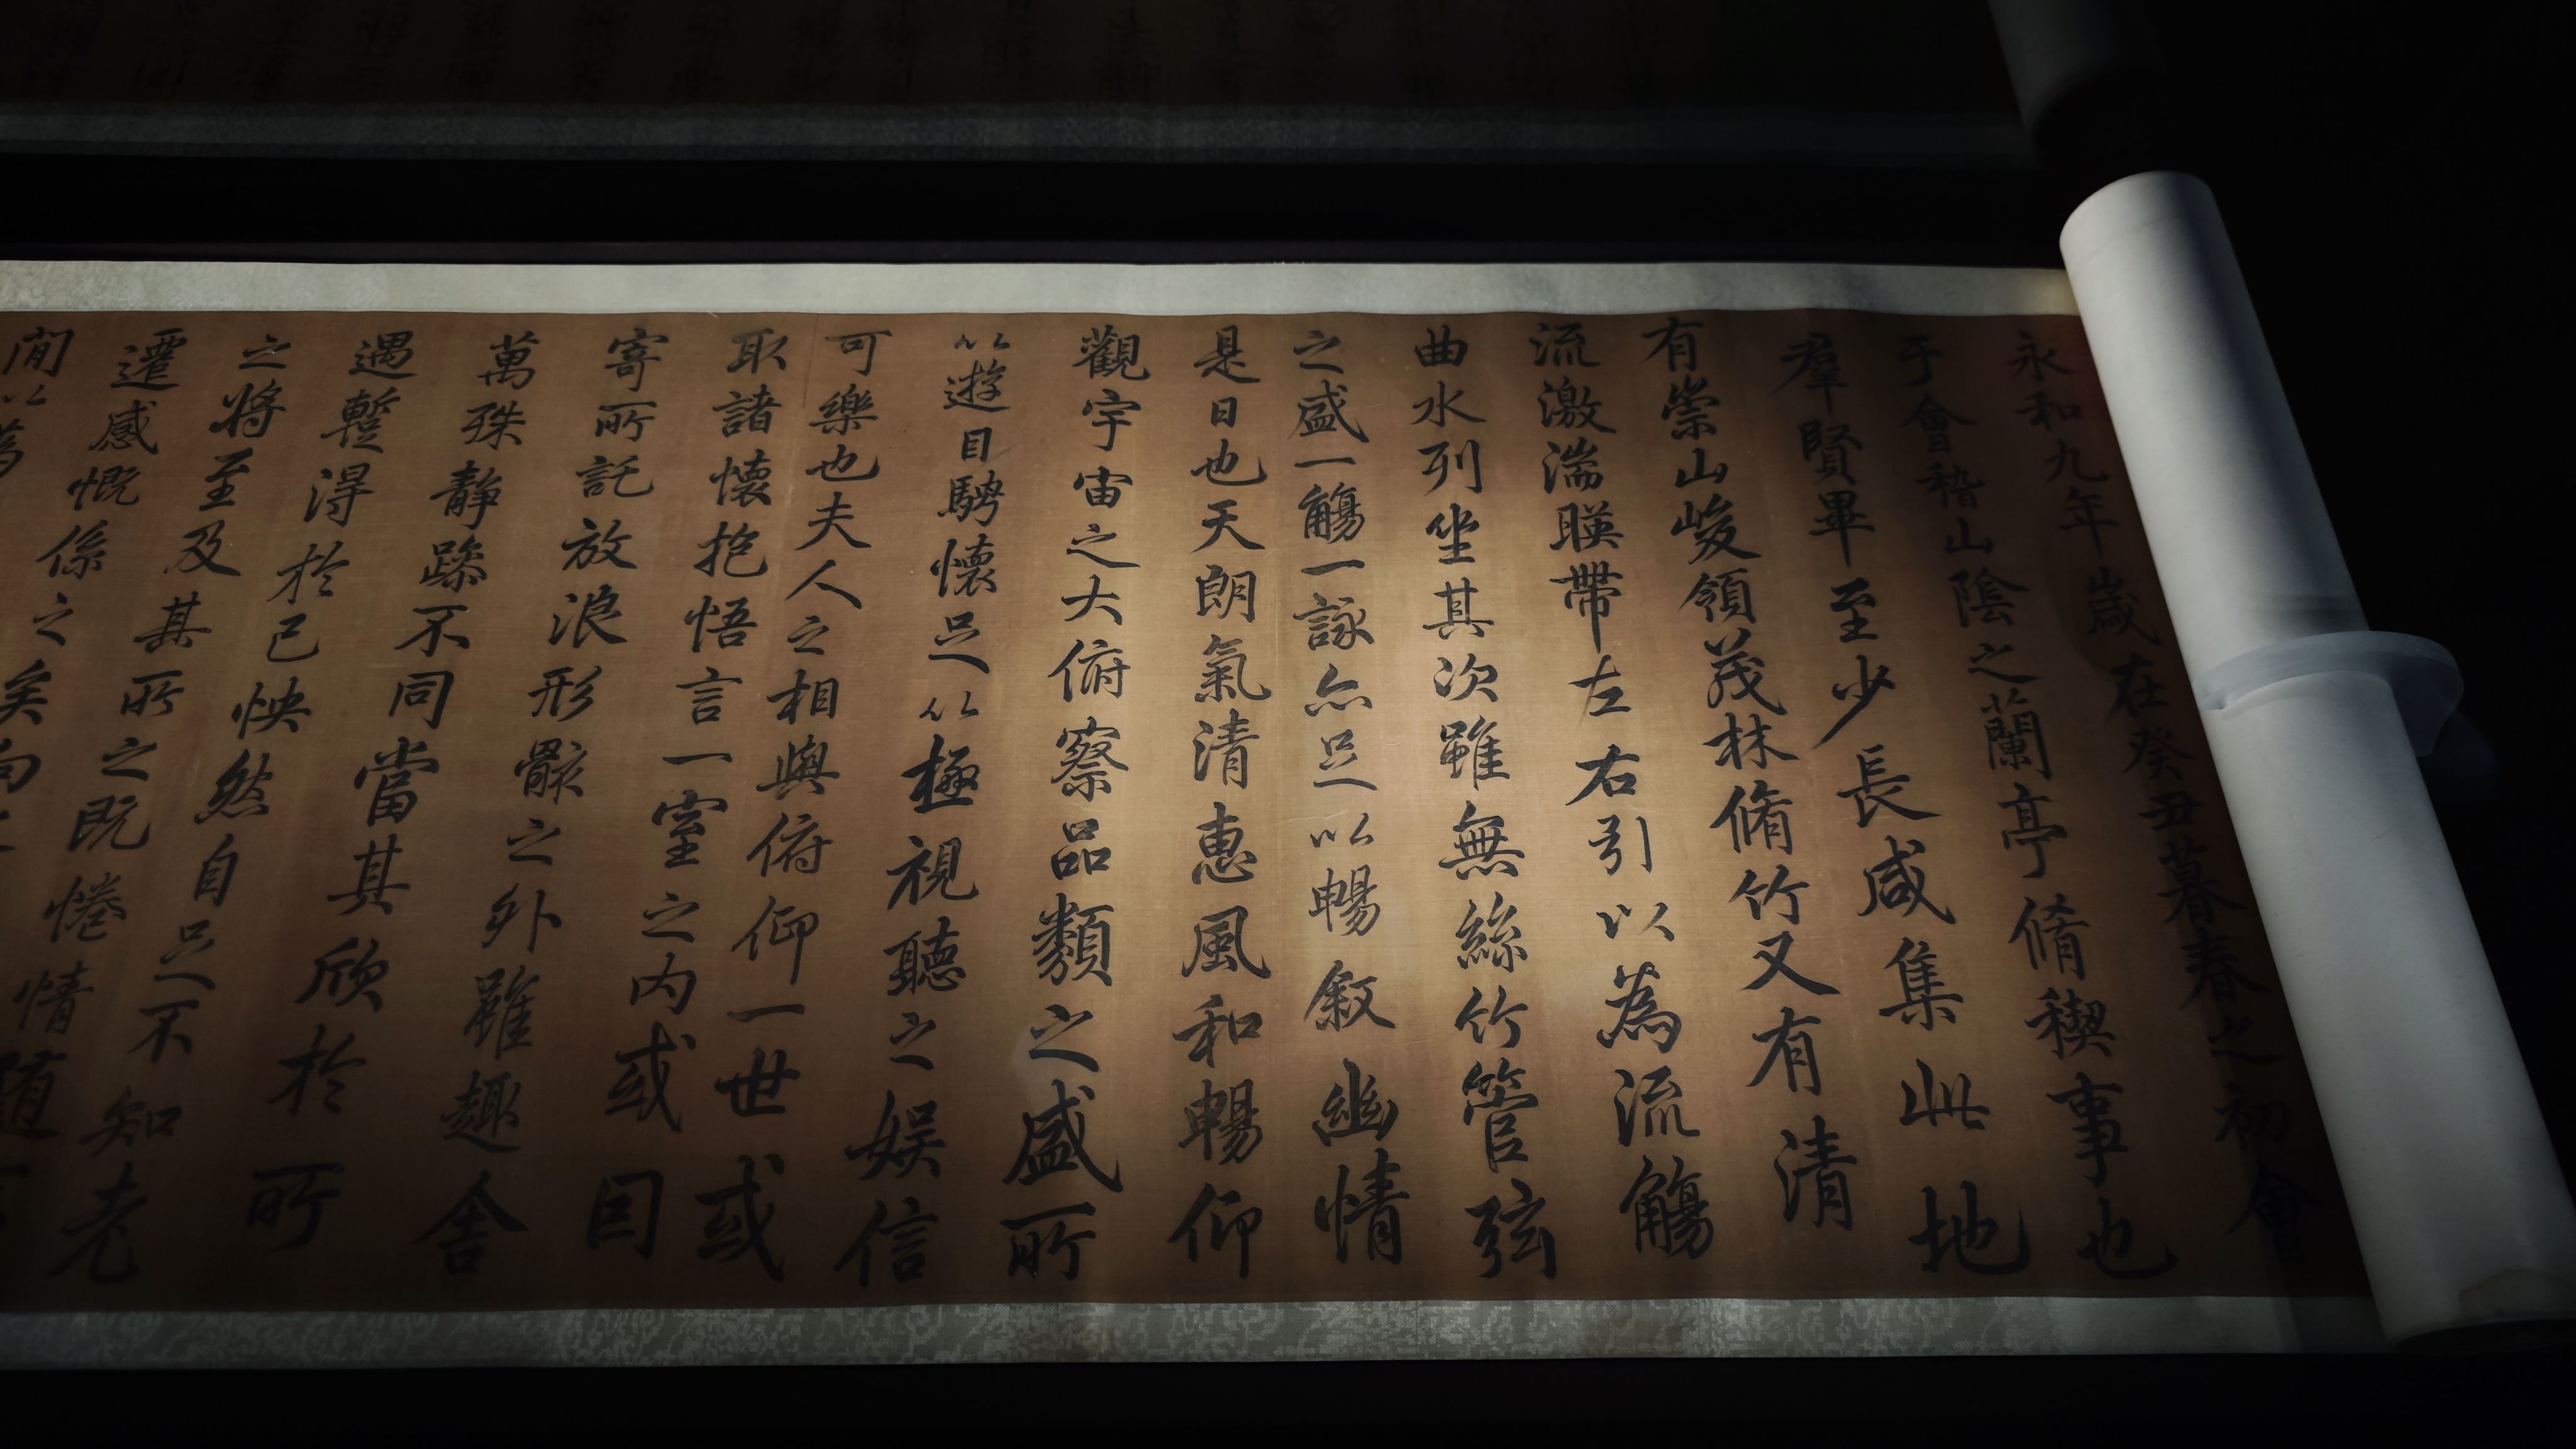 永和九年歲在癸丑暮春之初會
于會稽山陰之蘭亭脩稧事也
羣賢畢至少長咸集此地
有崇山峻領茂林脩竹又有清
流激湍暎帶左右引以為流觴
曲水列坐其次雖無絲竹管弦
之盛一觴一詠亦足以暢敘幽情
是日也天朗氣清惠風和暢仰
觀宇宙之大俯察品類之盛所
以遊目騁懷足以極視聽之娛信
可樂也夫人之相與俯仰一世或
取諸懷抱悟言一室之內或
寄所託放浪形骸之外雖趣舍
萬殊静躁不同當其欣於所
遇蹔得於己怏然自足不知老
之將至及其所之既惓情随
遷感慨係之矣向
閒以為